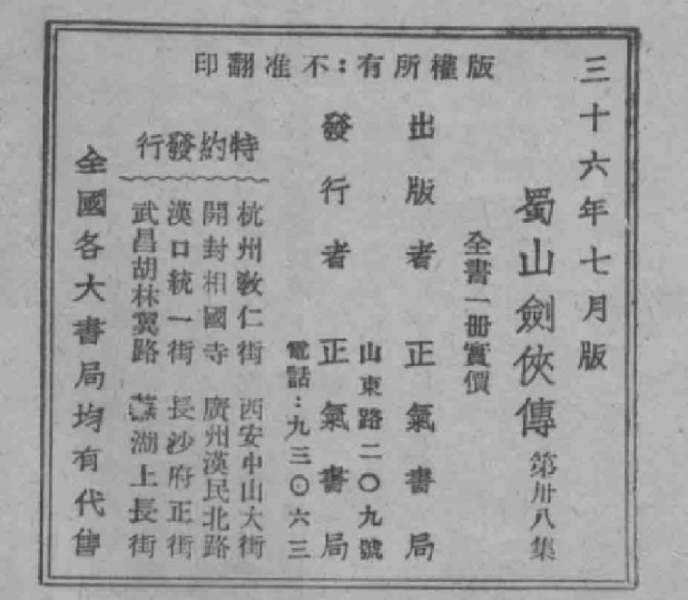 三十六年七月版
版權所有：不准翻印
蜀山劍俠傳 第卅八集
全書一冊實價
出版者 正氣書局
山東路二〇九號
發行者 正氣書局
電話：九三〇六三
特約發行
杭州敎仁街 西安中山大街
開封相國寺 廣州漢民北路
漢口統一街 長沙府正街
武昌胡林翼路 蕪湖上長街
全國各大書局均有代售